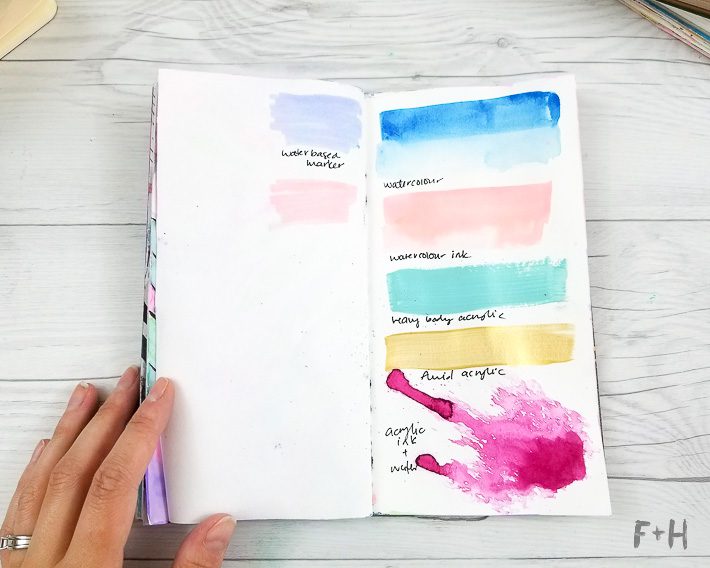 waterbased
marker
watercolour
watercolour ink
heavy body acrylic
fluid acrylic
acrylic
ink
+
water
F+H